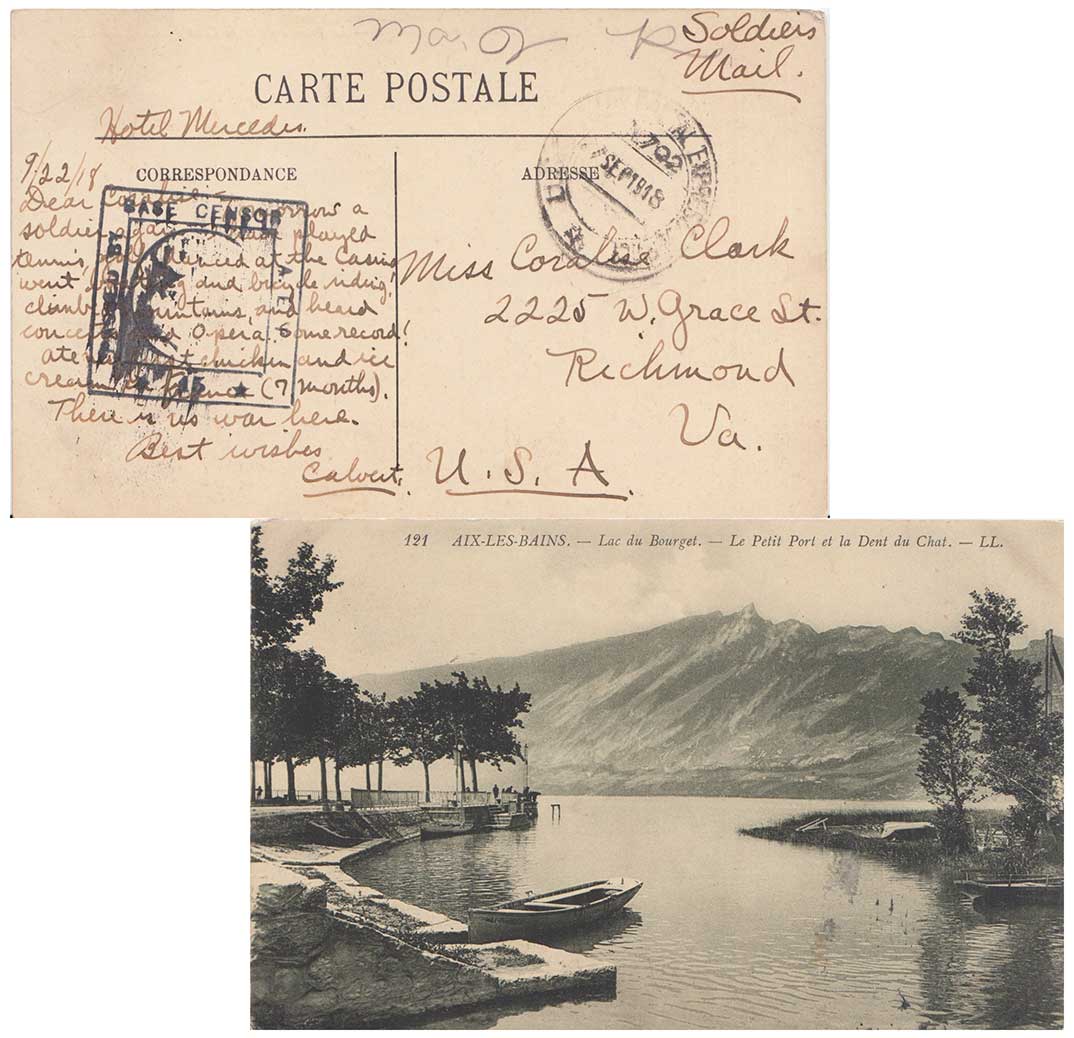 Soldiers
Mail.
CARTE POSTALE
Hotel Mercedes.
CORRESPONDANCE
9/22/18
Dear Coralise -
Tomorrow a
soldier again. Have played
tennis, golf, danced at the Casino
went boating and bicycle riding,
climbed mountains, and heard
concerts and Opera. Some record!
Ate first chicken and ice
cream in France (7 months).
There is no war here.
Best wishes
Calvert.
BASE CENSOR
A.E.F.
★ 15 ★
ADRESSE
792
SEP 1918
Miss Coralise Clark
2225 W. Grace St.
Richmond
Va.
U. S. A.
121 AIX-LES-BAINS. — Lac du Bourget. — Le Petit Port et la Dent du Chat. — LL.